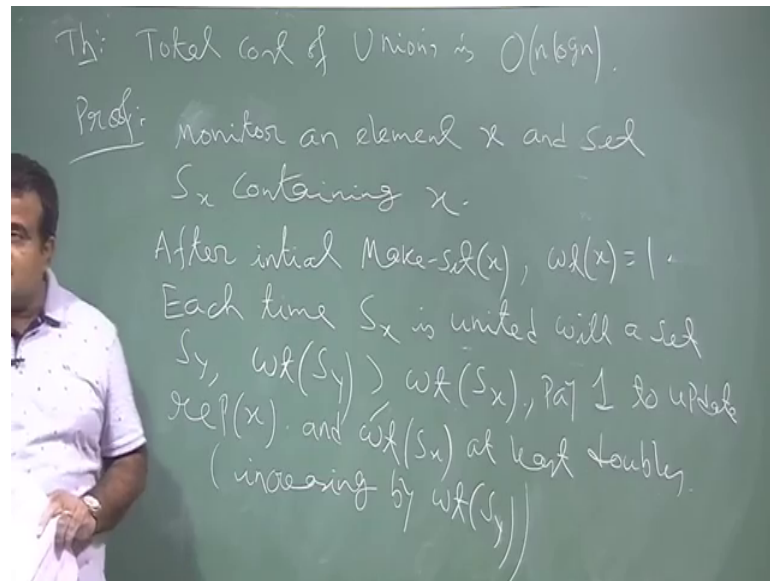 Th: Total cost of Unions is O(n log n).
Proof: Monitor an element x and set
Sx containing x.
After intial Make-set(x), wt(x) = 1.
Each time Sx is united with a set
Sy, wt(Sy) ≥ wt(Sx), pay 1 to update
rep(x). and wt(Sx) at least doubles.
(increasing by wt(Sy))